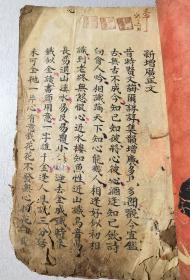 新增廣正文
昔時賢文誨爾諄諄集韻增廣多見多聞觀今宜鑑
古無古不成今知己知彼將心比心酒逢知己飲詩
向會人吟相識滿天下知心能幾人相逢好似初相
識到老終無怨恨心近水知魚性近山識鳥音易
長易退山溪水易反易覆小人心運去金成鐵時來
鐵似金讀書須用意一字值千金逢人且說三分話
未可全抛一片心有意栽花花不發無心